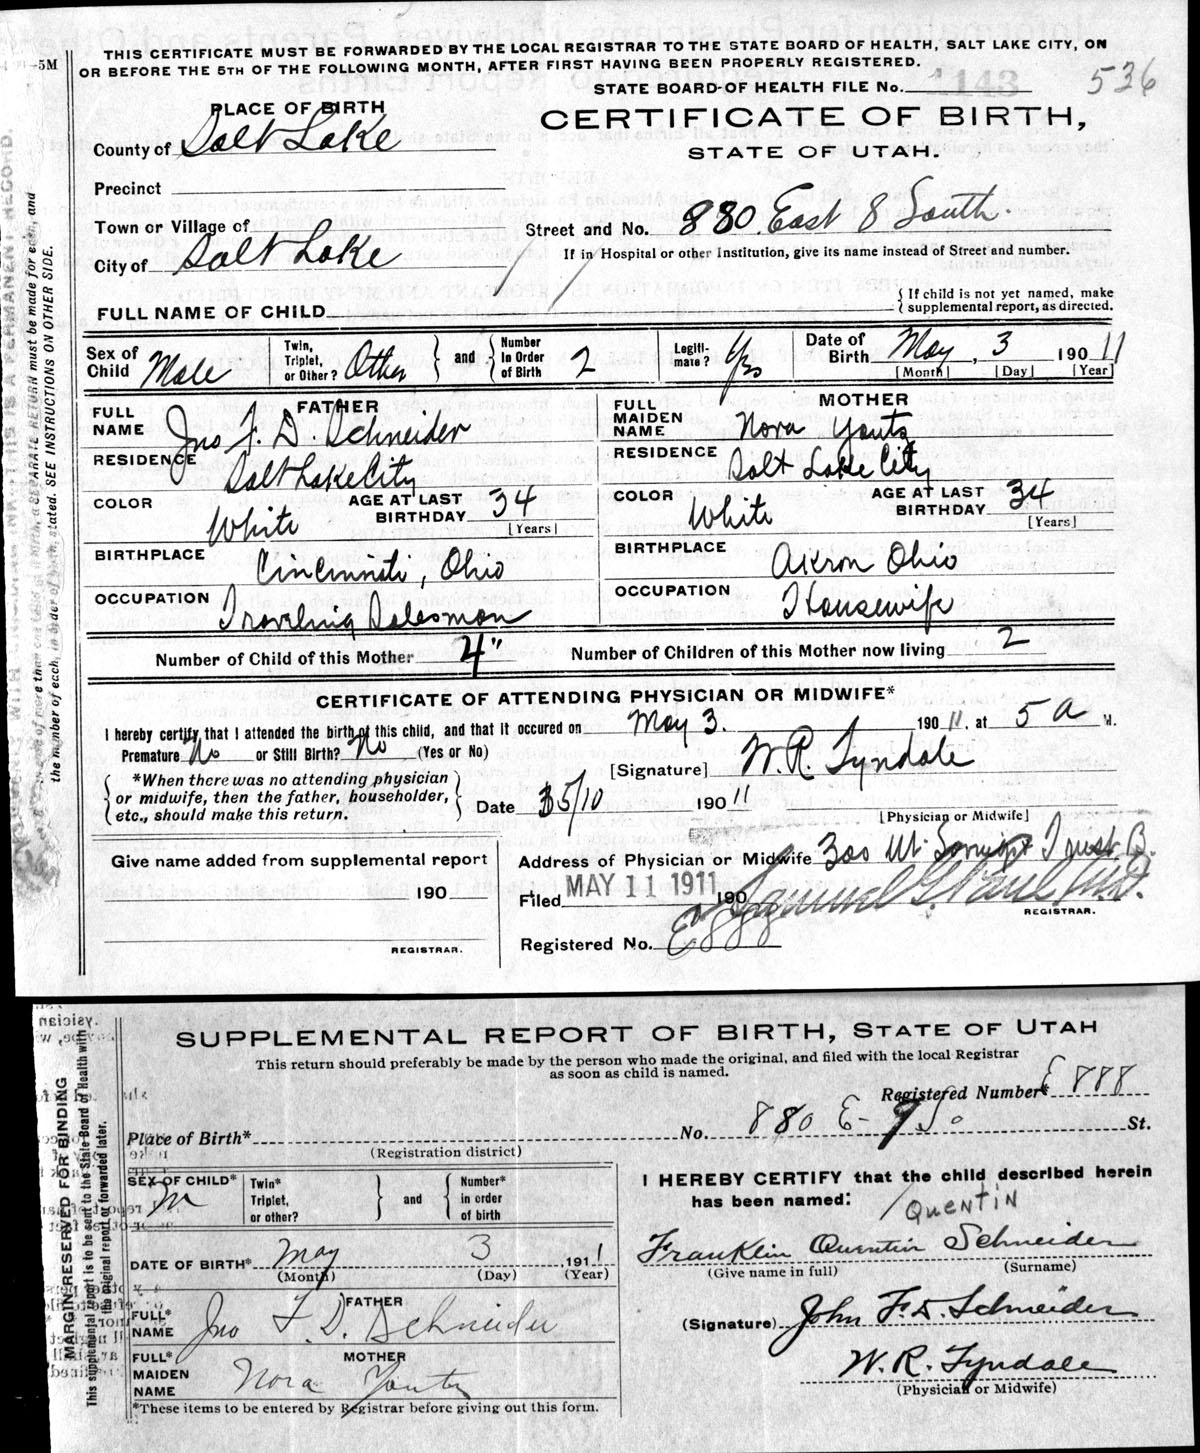 THIS CERTIFICATE MUST BE FORWARDED BY THE LOCAL REGISTRAR TO THE STATE BOARD OF HEALTH, SALT LAKE CITY, ON
OR BEFORE THE 5TH OF THE FOLLOWING MONTH, AFTER FIRST HAVING BEEN PROPERLY REGISTERED.
—5M
STATE BOARD OF HEALTH FILE No. 1143 536
PLACE OF BIRTH
CERTIFICATE OF BIRTH,
STATE OF UTAH.
County of Salt Lake
Precinct
Town or Village of
Street and No. 880 East 8 South.
City of Salt Lake
If in Hospital or other Institution, give its name instead of Street and number.
FULL NAME OF CHILD
{ If child is not yet named, make
supplemental report, as directed.
Sex of Child Male
Twin, Triplet, or Other? Other } and { Number in Order of Birth 2
Legiti-mate? Yes
Date of Birth May, 3 190 11
[Month] [Day] [Year]
FATHER
FULL NAME Jno F. D. Schneider
RESIDENCE Salt Lake City
COLOR White
AGE AT LAST BIRTHDAY 34 [Years]
BIRTHPLACE Cincinnati, Ohio
OCCUPATION Traveling Salesman
MOTHER
FULL MAIDEN NAME Nora Yontz
RESIDENCE Salt Lake City
COLOR White
AGE AT LAST BIRTHDAY 34 [Years]
BIRTHPLACE Akron Ohio
OCCUPATION Housewife
Number of Child of this Mother 4" Number of Children of this Mother now living 2
CERTIFICATE OF ATTENDING PHYSICIAN OR MIDWIFE*
I hereby certify that I attended the birth of this child, and that it occured on May 3. 190 11, at 5 a M.
Premature No or Still Birth? No (Yes or No)
[Signature] W. R. Tyndale
*When there was no attending physician
or midwife, then the father, householder,
etc., should make this return.
Date 5/10 190 11
[Physician or Midwife]
Give name added from supplemental report
190
REGISTRAR.
Address of Physician or Midwife 300 Trust B.
Filed MAY 11 1911 190 Samuel G. Paul M.D.
REGISTRAR.
Registered No. E 888
the member of each, in order of birth, stated. SEE INSTRUCTIONS ON OTHER SIDE.
SUPPLEMENTAL REPORT OF BIRTH, STATE OF UTAH
This return should preferably be made by the person who made the original, and filed with the local Registrar
as soon as child is named.
Registered Number* E 888
Place of Birth* No. 880 E - 9 So St.
(Registration district)
SEX OF CHILD* M
Twin* Triplet, or other? } and { Number* in order of birth
DATE OF BIRTH* May 3 1911
(Month) (Day) (Year)
FATHER
FULL* NAME Jno F. D. Schneider
MOTHER
FULL* MAIDEN NAME Nora Yontz
*These items to be entered by Registrar before giving out this form.
I HEREBY CERTIFY that the child described herein
has been named:
/ QUENTIN
Franklin Quentin Schneider
(Give name in full) (Surname)
(Signature) John F. D. Schneider
W. R. Tyndale
(Physician or Midwife)
MARGIN RESERVED FOR BINDING
This supplemental report is to be sent to the State Board of Health with
the original report or forwarded later.